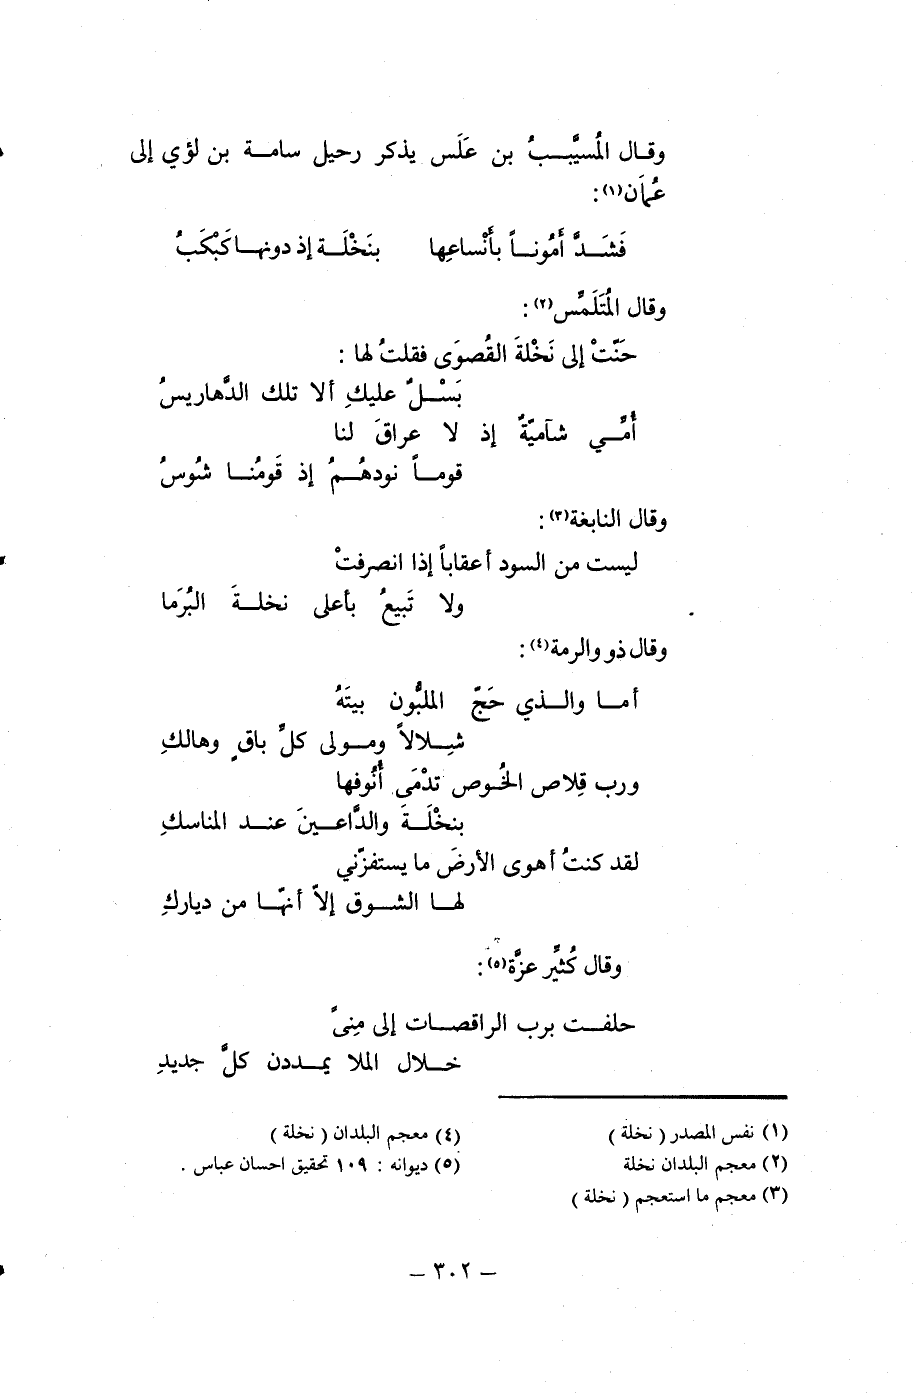 وقال المُسيَّبُ بن عَلَس يذكر رحيل سامة بن لؤي إلى
عُمَان(١):
فَشَدَّ أَمُوناً بأَنْساعِها بنَخْلَة إذ دونها كَبْكَبُ
وقال المُتَلَمِّس(٢):
حَنّتْ إلى نَخْلةَ القُصوَى فقلتُ لها :
بَسْلٌ عليكِ ألا تلك الدَّهاريسُ
أُمِّي شآميّةٌ إذ لا عراقَ لنا
قوماً نودهُمُ إذ قَومُنا شُوسُ
وقال النابغة(٣):
ليست من السود أعقاباً إذا انصرفتْ
ولا تَبيعُ بأعلى نخلةَ البُرَما
وقال ذو والرمة(٤):
أما والذي حَجّ الملبُّون بيتَهُ
شِلالاً ومولى كلِّ باقٍ وهالكِ
ورب قِلاص الخُوص تدْمَى أُنُوفها
بنخْلَةَ والدَّاعينَ عند المناسكِ
لقد كنتُ أهوى الأرضَ ما يستفزّني
لها الشوق إلاّ أنهّا من ديارِكِ
وقال كُثيِّر عزَّة(٥):
حلفت برب الراقصات إلى مِنىً
خلال الملا يمددن كلَّ جديدِ
(١) نفس المصدر ( نخلة )
(٢) معجم البلدان نخلة
(٣) معجم ما استعجم ( نخلة )
(٤) معجم البلدان ( نخلة )
(٥) ديوانه : ١٠٩ تحقيق احسان عباس .
– ٣٠٢ –